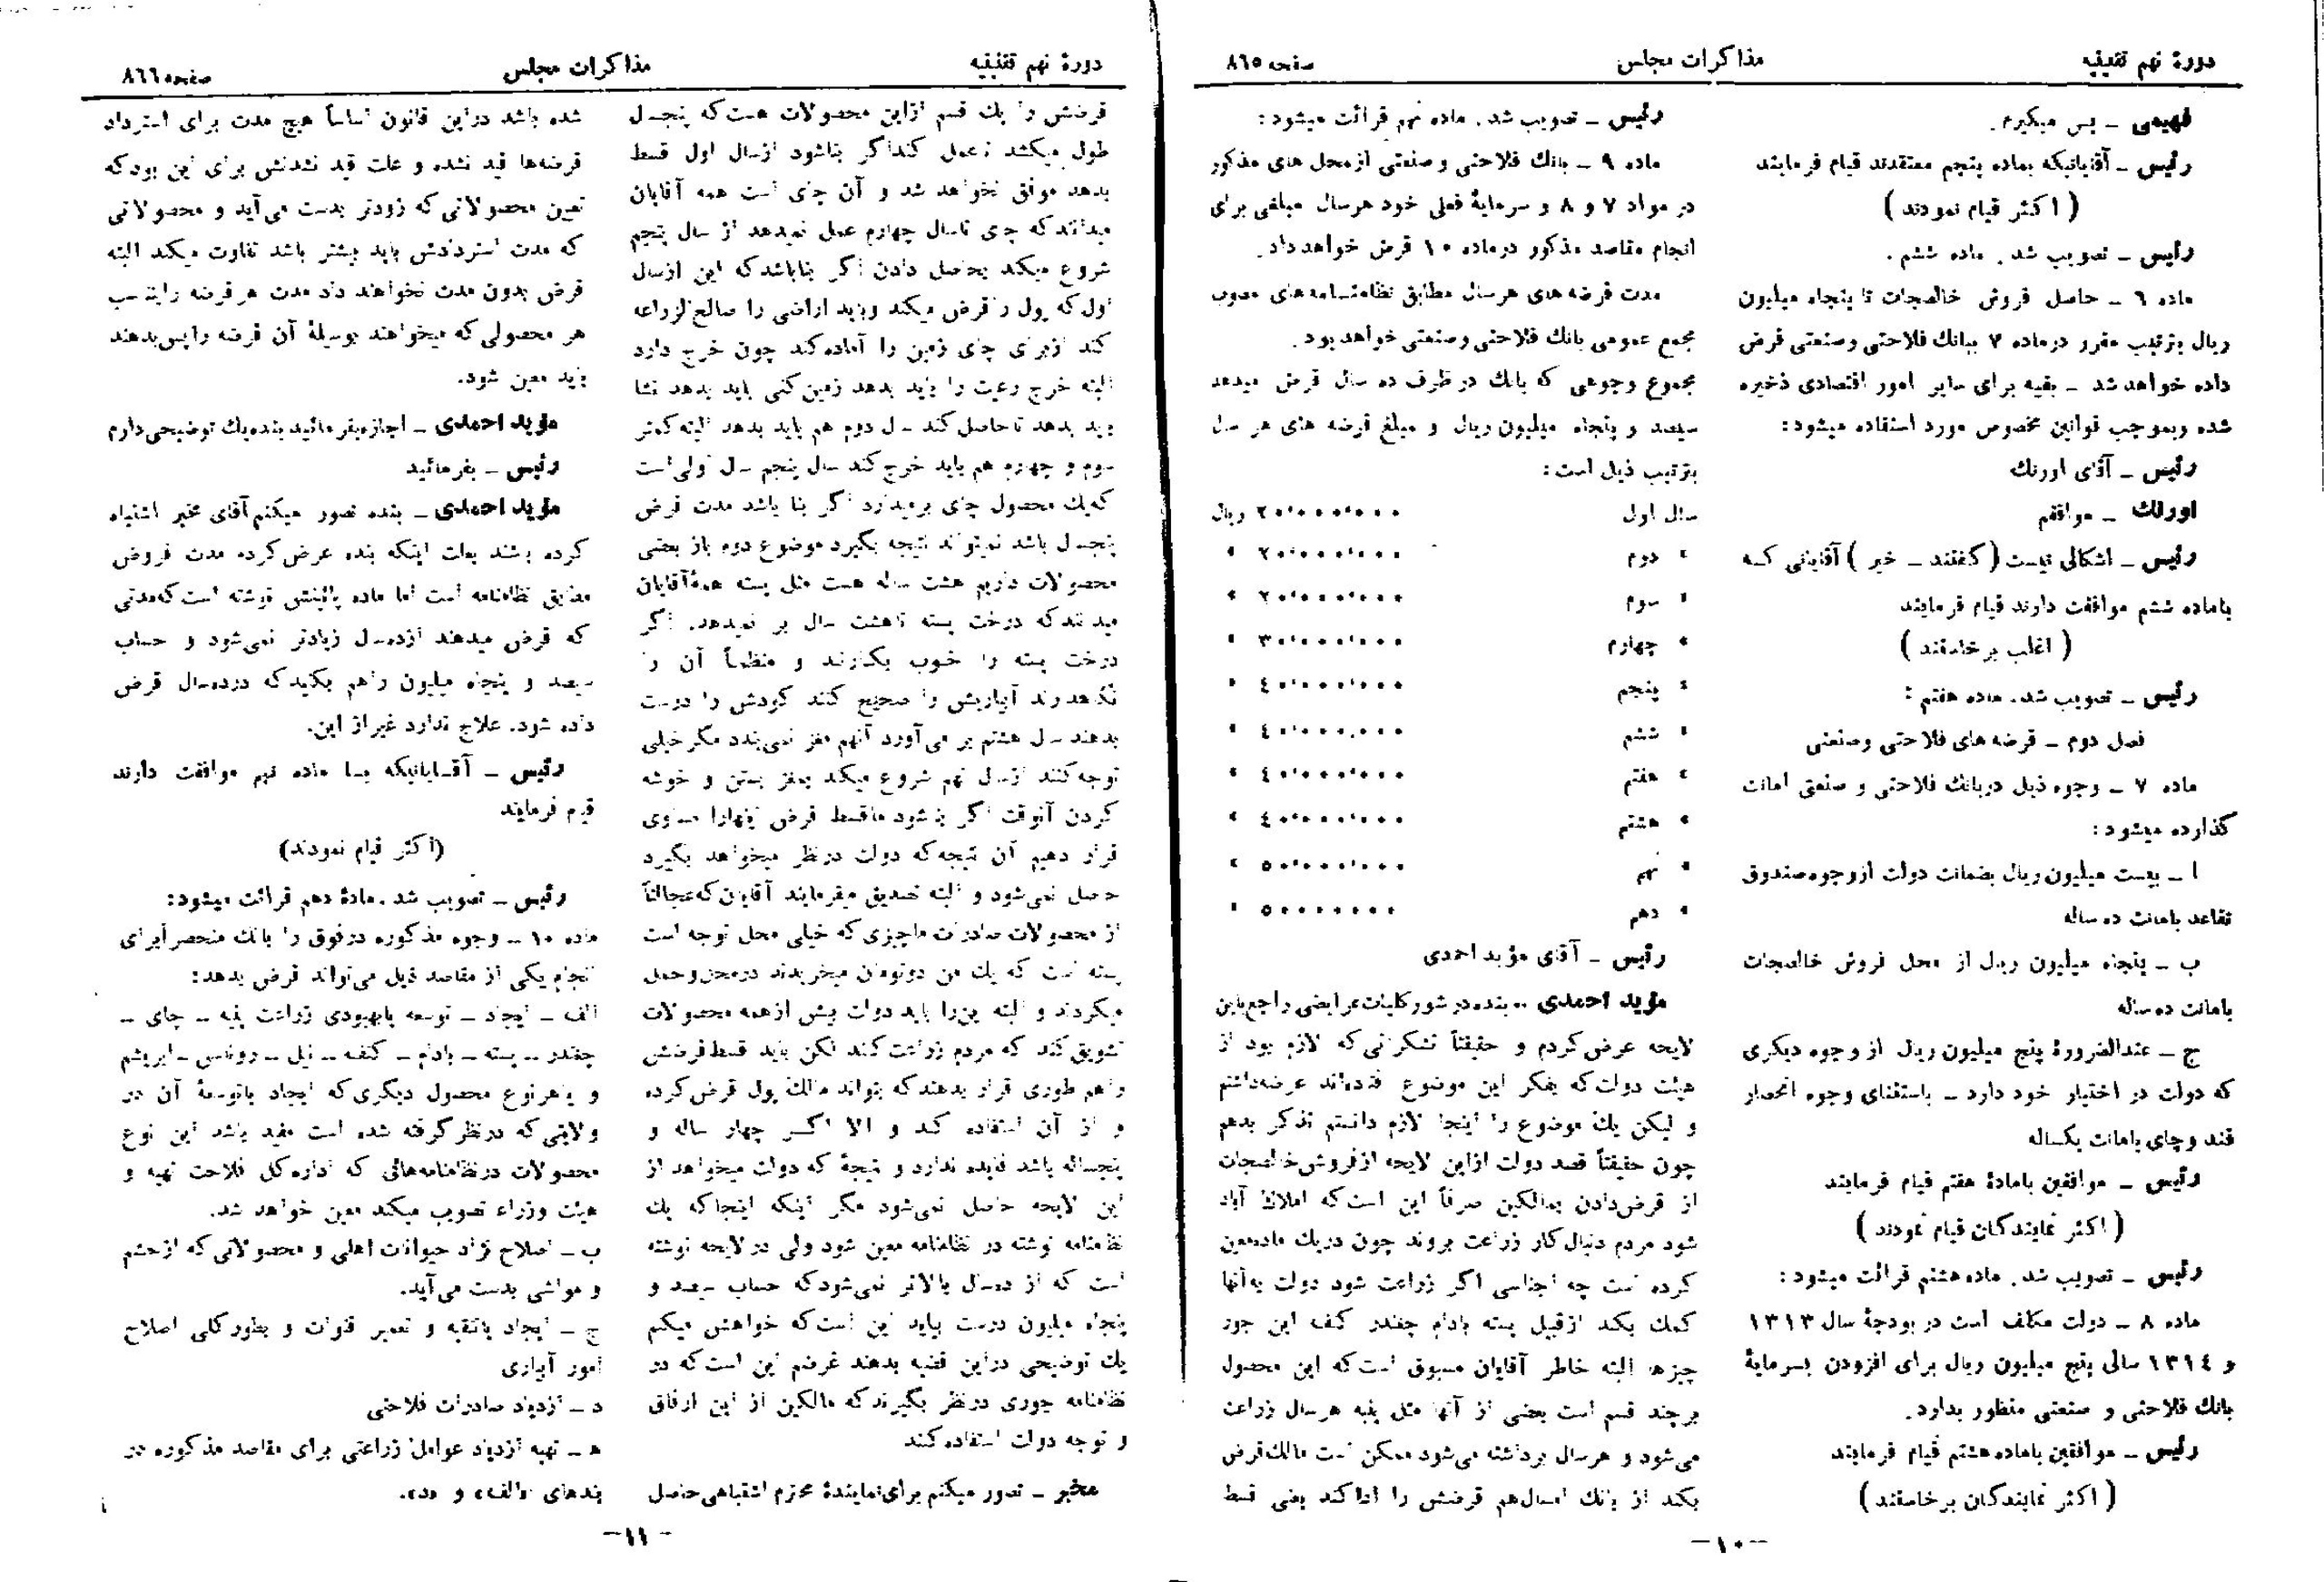 دورهٔ نهم تقنینیه
مذاکرات مجلس
صفحه ۸٦٥
فهیمی ـ پس میگیرم.
رئیس ـ آقایانیکه بماده پنجم معتقدند قیام فرمایند
( اکثر قیام نمودند )
رئیس ـ تصویب شد . ماده ششم .
ماده ٦ ـ حاصل فروش خالصجات تا پنجاه میلیون
ریال بترتیب مقرر درماده ۷ ببانك فلاحتی وصنعتی قرض
داده خواهد شد ـ بقیه برای سایر امور اقتصادی ذخیره
شده وبموجب قوانین مخصوص مورد استفاده میشود:
رئیس ـ آقای اورنك
اورنك ـ موافقم
رئیس ـ اشکالی نیست ( گفتند ـ خیر ) آقایانی کـه
باماده ششم موافقت دارند قیام فرمایند
( اغلب برخاستند )
رئیس ـ تصویب شد. ماده هفتم :
فصل دوم ـ قرضه های فلاحتی وصنعتی
ماده ۷ ـ وجوه ذیل دربانك فلاحتی و صنعتی امانت
گذارده میشود:
ا ـ بیست میلیون ریال بضمانت دولت ازوجوه صندوق
تقاعد بامانت ده ساله
ب ـ پنجاه میلیون ریال از محل فروش خالصجات
بامانت ده ساله
ج ـ عندالضرورة پنج میلیون ریال از وجوه دیگری
که دولت در اختیار خود دارد ـ باستثنای وجوه انحصار
قند وچای بامانت یکساله
رئیس ـ موافقین بامادهٔ هفتم قیام فرمایند
( اکثر نمایندگان قیام نمودند )
رئیس ـ تصویب شد . ماده هشتم قرائت میشود :
ماده ۸ ـ دولت مکلف است در بودجهٔ سال ۱۳۱۳
و ۱۳۱٤ سالی پنج میلیون ریال برای افزودن بسرمایهٔ
بانك فلاحتی و صنعتی منظور بدارد.
رئیس ـ موافقین باماده هشتم قیام فرمایند
( اکثر نمایندگان برخاستند )
رئیس ـ تصویب شد . ماده نهم قرائت میشود :
ماده ۹ ـ بانك فلاحتی و صنعتی ازمحل های مذکور
در مواد ۷ و ۸ و سرمایهٔ فعلی خود هرسال مبلغی برای
انجام مقاصد مذکور درماده ۱۰ قرض خواهد داد.
مدت قرضه های هرسال مطابق نظامنامه های مصوب
مجمع عمومی بانك فلاحتی وصنعتی خواهد بود.
مجموع وجوهی که بانك در ظرف ده سال قرض میدهد
سیصد و پنجاه میلیون ریال و مبلغ قرضه های هر سال
بترتیب ذیل است :
سال اول ۲۰٬۰۰۰٬۰۰۰ ریال
» دوم ۲۰٬۰۰۰٬۰۰۰ »
» سوم ۲۰٬۰۰۰٬۰۰۰ »
» چهارم ۳۰٬۰۰۰٬۰۰۰ »
» پنجم ٤۰٬۰۰۰٬۰۰۰ »
» ششم ٤۰٬۰۰۰٬۰۰۰ »
» هفتم ٤۰٬۰۰۰٬۰۰۰ »
» هشتم ٤۰٬۰۰۰٬۰۰۰ »
» نهم ٥۰٬۰۰۰٬۰۰۰ »
» دهم ٥۰٬۰۰۰٬۰۰۰ »
رئیس ـ آقای مؤید احمدی
مؤید احمدی ـ بنده در شور کلیات عرایضی راجع باین
لایحه عرض کردم و حقیقتاً تشکراتی که لازم بود از
هیئت دولت که بفکر این موضوع افتاده اند عرضه داشتم
و لیکن یك موضوع را اینجا لازم دانستم تذکر بدهم
چون حقیقتاً قصد دولت ازاین لایحه ازفروش خالصجات
از قرض دادن بمالکین صرفاً این است که املاك آباد
شود مردم دنبال کار زراعت بروند چون دریك ماده معین
کرده است چه اجناسی اگر زراعت شود دولت به آنها
کمك بکند ازقبیل پسته بادام چغندر کنف این جور
چیزها البته خاطر آقایان مسبوق است که این محصول
برچند قسم است بعضی از آنها مثل پنبه هرسال زراعت
می شود و هرسال برداشته می شود ممکن است مالك قرض
بکند از بانك امسال هم قرضش را ادا کند یعنی قسط
ـ ۱۰ ـ
دورهٔ نهم تقنینیه
مذاکرات مجلس
صفحه ۸٦٦
قرضش را یك قسم ازاین محصولات هست که پنجسال
طول میکشد تا عمل کند اگر بناشود ازسال اول قسط
بدهد موفق نخواهد شد و آن چای است همه آقایان
میدانند که چای تاسال چهارم عمل نمیدهد از سال پنجم
شروع میکند بحاصل دادن اگر بناباشد که این ازسال
اول که پول را قرض میکند وباید اراضی را صالح الزراعه
کند ازبرای چای زمین را آماده کند چون خرج دارد
البته خرج رعیت را باید بدهد زمین کنی باید بدهد نشا
باید بدهد تا حاصل کند سال دوم هم باید بدهد البته کمتر
سوم و چهارم هم باید خرج کند سال پنجم سال اولی است
که یك محصول چای برمیدارد اگر بنا باشد مدت قرض
پنجسال باشد نمیتواند نتیجه بگیرد موضوع دوم باز بعضی
محصولات داریم هشت ساله هست مثل پسته همهٔ آقایان
میدانند که درخت پسته تا هشت سال بر نمیدهد. اگر
درخت پسته را خوب بکارند و منظماً آن را
نگاهدارند آبیاریش را صحیح کنند کودش را درست
بدهند سال هشتم بر می آورد آنهم مغز نمی بندد مگر خیلی
توجه کنند ازسال نهم شروع میکند بمغز بستن و خوشه
کردن آنوقت اگر بنا شود ما قسط قرض اینهارا مساوی
قرار دهیم آن نتیجه که دولت درنظر میخواهد بگیرد
حاصل نمی شود و البته تصدیق میفرمایند آقایان که عجالتاً
از محصولات صادرات ما چیزی که خیلی محل توجه است
پسته است که یك من دوتومان میخریدند درمحل وحمل
میکردند و البته این را باید دولت بیش ازهمه محصولات
تشویق کند که مردم زراعت کنند لکن باید قسط قرضش
را هم طوری قرار بدهند که بتواند مالك پول قرض کرده
و از آن استفاده کند و الا اگـر چهار ساله و
پنجساله باشد فایده ندارد و نتیجهٔ که دولت میخواهد از
این لایحه حاصل نمی شود مگر اینکه اینجا که یك
نظامنامه نوشته در نظامنامه معین شود ولی در لایحه نوشته
است که از ده سال بالاتر نمی شود که حساب سیصد و
پنجاه میلیون درست بیاید این است که خواهش میکنم
یك توضیحی دراین قضیه بدهند غرضم این است که در
نظامنامه جوری درنظر بگیرند که مالکین از این ارفاق
و توجه دولت استفاده کنند
مخبر ـ تصور میکنم برای نمایندهٔ محترم اشتباهی حاصل
شده باشد دراین قانون اساساً هیچ مدت برای استرداد
قرضه ها قید نشده و علت قید نشدنش برای این بود که
تعیین محصولاتی که زودتر بدست می آید و محصولاتی
که مدت استردادش باید بیشتر باشد تفاوت میکند البته
قرض بدون مدت نخواهند داد مدت هر قرضه را بتناسب
هر محصولی که میخواهند بوسیلهٔ آن قرضه را پس بدهند
باید معین شود.
مؤید احمدی ـ اجازه بفرمائید بنده یك توضیحی دارم
رئیس ـ بفرمائید
مؤید احمدی ـ بنده تصور میکنم آقای مخبر اشتباه
کرده باشند بعلت اینکه بنده عرض کردم مدت قروض
مطابق نظامنامه است اما ماده پائینش نوشته است که مدتی
که قرض میدهند ازده سال زیادتر نمی شود و حساب
سیصد و پنجاه میلیون راهم بکنید که درده سال قرض
داده شود. علاج ندارد غیر از این.
رئیس ـ آقـایانیکه بـا ماده نهم موافقت دارند
قیام فرمایند
(اکثر قیام نمودند)
رئیس ـ تصویب شد . مادهٔ دهم قرائت میشود:
ماده ۱۰ ـ وجوه مذکوره درفوق را بانك منحصراً برای
انجام یکی از مقاصد ذیل می تواند قرض بدهد:
الف ـ ایجاد ـ توسعه یا بهبودی زراعت پنبه ـ چای ـ
چغندر ـ پسته ـ بادام ـ کنف ـ نیل ـ روناس ـ ابریشم
و یا هرنوع محصول دیگری که ایجاد یا توسعهٔ آن در
ولایتی که درنظر گرفته شده است مفید باشد این نوع
محصولات درنظامنامه هائی که اداره کل فلاحت تهیه و
هیئت وزراء تصویب میکند معین خواهد شد.
ب ـ اصلاح نژاد حیوانات اهلی و محصولاتی که ازحشم
و مواشی بدست می آید.
ج ـ ایجاد یا تنقیه و تعمیر قنوات و بطورکلی اصلاح
امور آبیاری
د ـ ازدیاد صادرات فلاحتی
هـ ـ تهیه ازدیاد عوامل زراعتی برای مقاصد مذکوره در
بندهای «الف» و «د».
ـ ۱۱ ـ